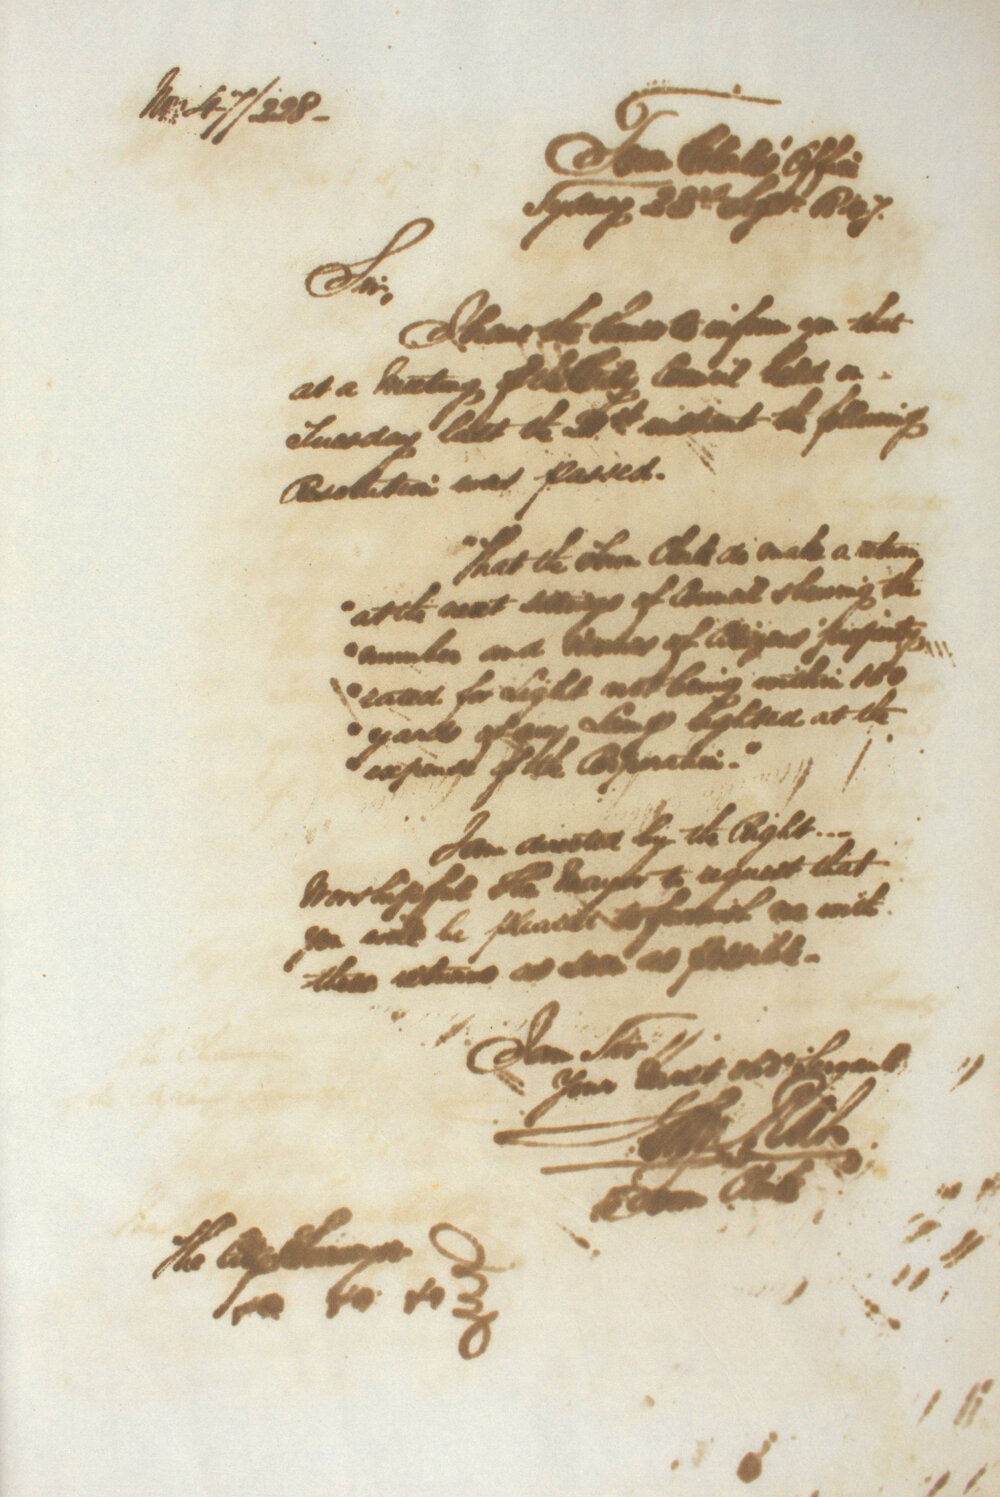 No 47/228-
Town Clerks' Office
Sydney 28th Septr. 1847.
Sir,
I have the honor to inform you that
at a Meeting of the City Council held on
Tuesday last the 21st instant the following
Resolution was passed.
"That the Town Clerk do make a return
"at the next sittings of Council shewing the
"number and Names of Citizens' property
"rated for Light not being within 100
"yards of any Lamp lighted at the
"expense of the Corporation."
I am directed by the Right....
Worshipful The Mayor to request that
you will be pleased to furnish me with
these returns as soon as possible.
I am Sir
Your Most obdt Servant
Town Clerk
The City Surveyor
&c &c &c